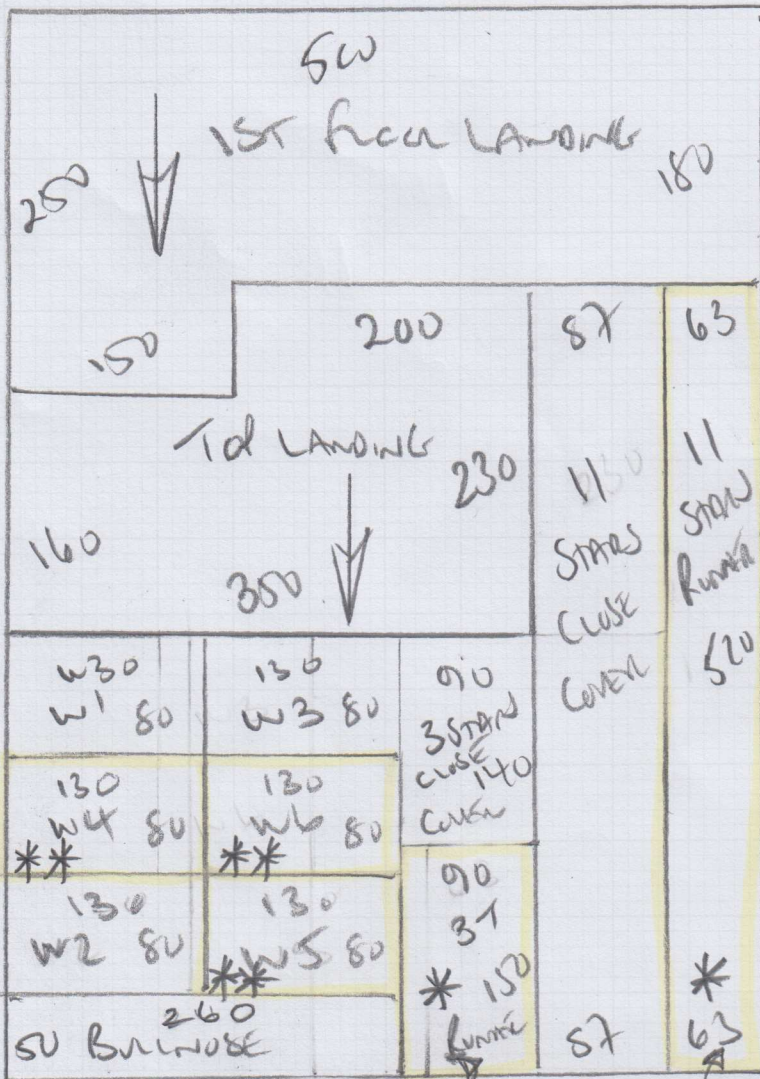 500
1ST FLOOR LANDING
250
180
150
200
87
63
TOP LANDING
230
11
STAIRS
CLOSE
COVER
11
STAIR
RUNNER
520
160
350
W1 80
130
W3 80
90
3 STAIRS
CLOSE 140
COVER
130
W4 80
**
130
W6 80
**
130
W2 80
130
W5 80
**
90
3T
* 150
RUNNER
260
50 BULLNOSE
87
*
63